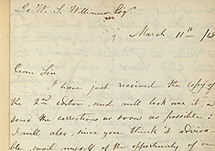 To W. S. Williams Esqr
March 11th /48
Dear Sir
I have just received the copy of
the 2nd edition and will look over it, and
send the corrections as soon as possible;
I will also, since you think it advisa-
ble, avail myself of the opportunity of